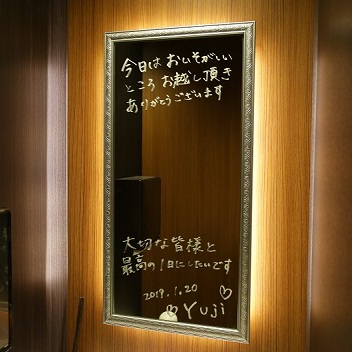 今日は おいそがしい
ところ お越し頂き
ありがとうございます
大切な皆様と
最高の1日にしたいです
2019.1.20
♡ Yuji ♡